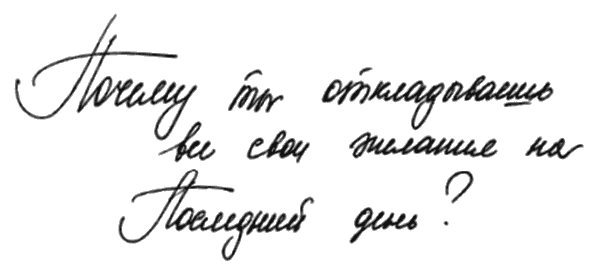 Почему ты откладываешь
все свои желания на
Последний день?